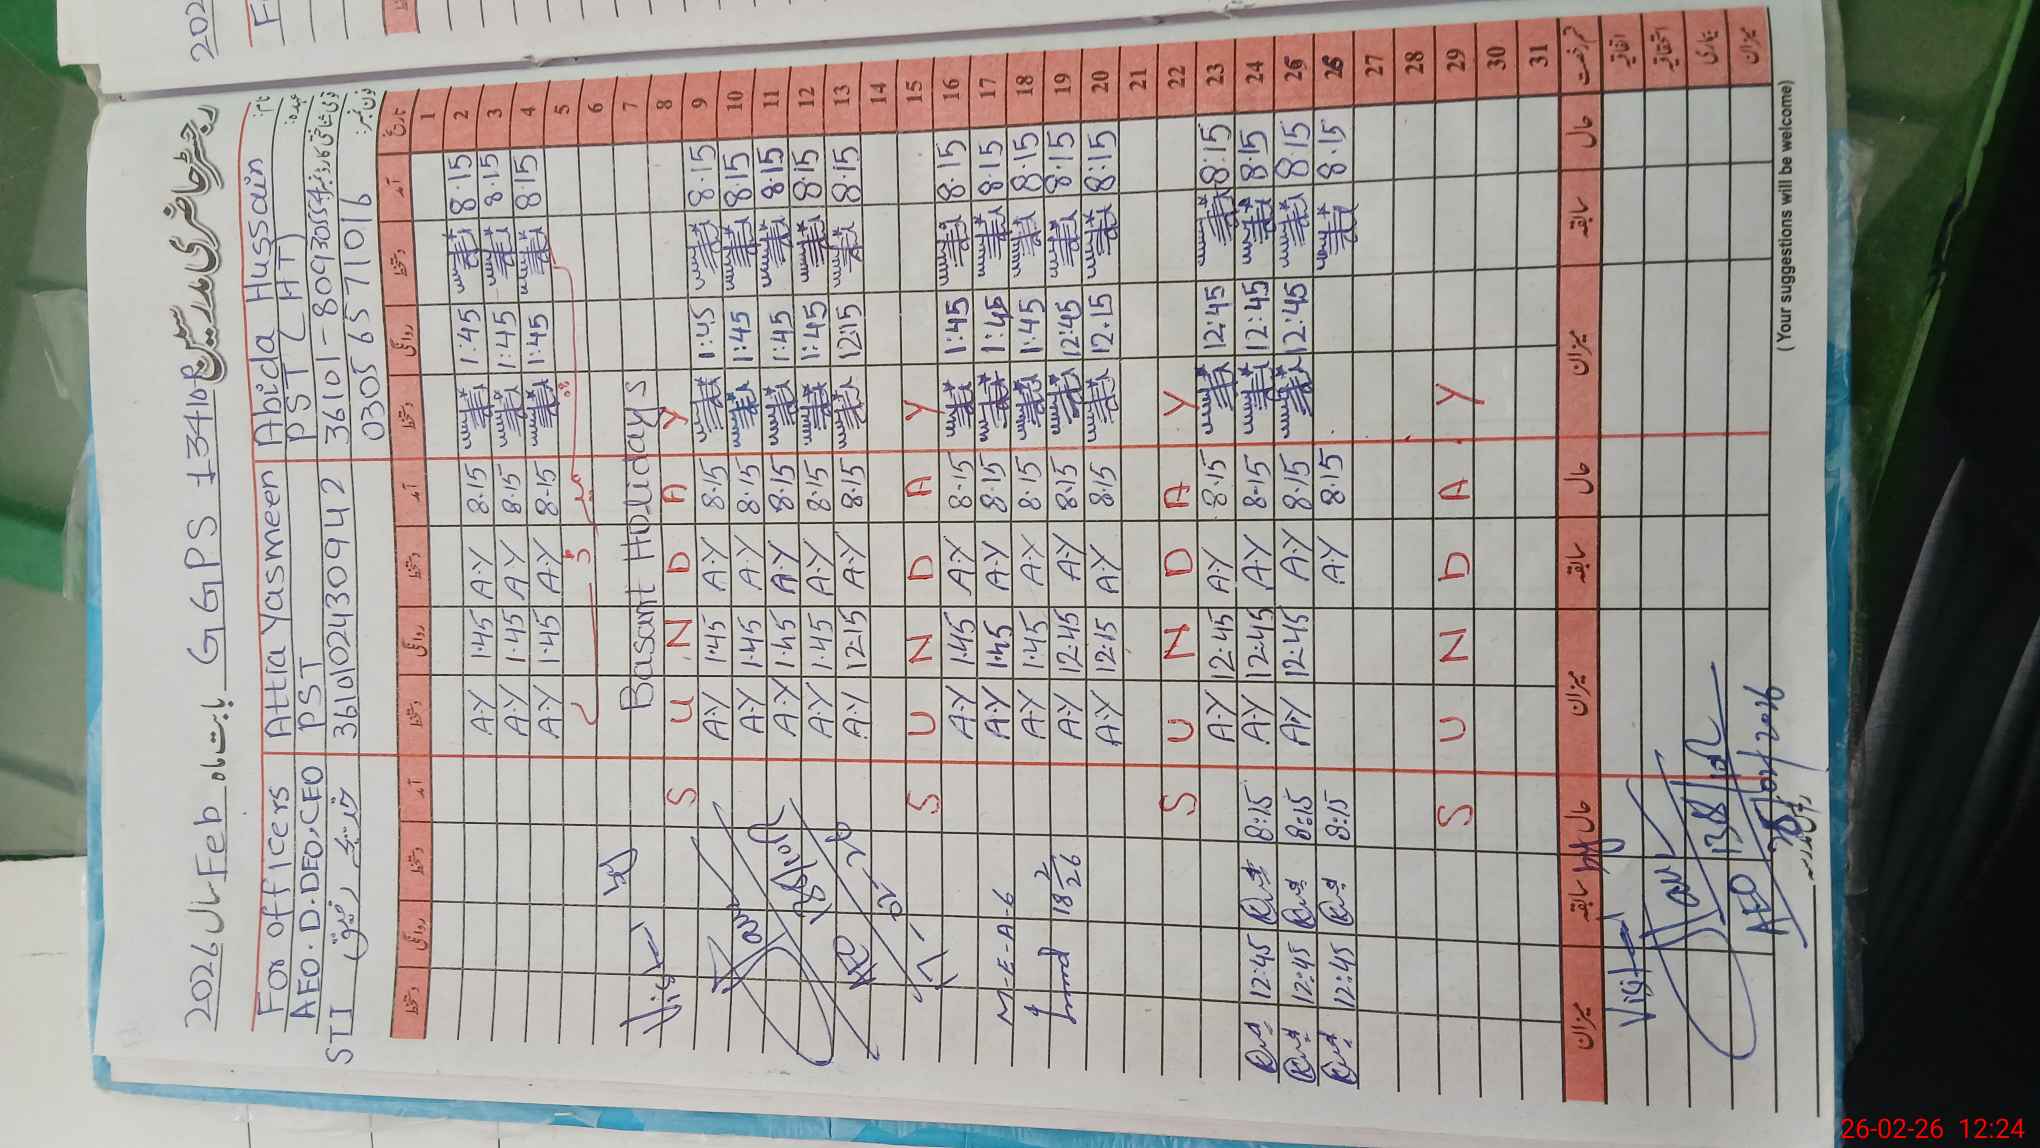 رجسٹر حاضری مدرسین
2026 سال Feb بابت ماہ GGPS 134/10R
For officers Attia Yasmeen Abida Hussain نام:
AEO. D.DEO, CEO PST PST (HT) عہدہ:
STI 3610102430942 36101-8093055-4
03056571016 فون نمبر:
دستخط روانگی دستخط آمد دستخط روانگی دستخط آمد دستخط روانگی دستخط آمد تاریخ
1
A.Y 1:45 A.Y 8:15 1:45 8:15 2
A.Y 1:45 A.Y 8:15 1:45 8:15 3
A.Y 1:45 A.Y 8:15 1:45 8:15 4
5
6
Basant Holidays 7
Visit
SUNDAY 8
A.Y 1:45 A.Y 8:15 1:45 8:15 9
A.Y 1:45 A.Y 8:15 1:45 8:15 10
A.Y 1:45 A.Y 8:15 1:45 8:15 11
A.Y 1:45 A.Y 8:15 1:45 8:15 12
AEO A.Y 12:15 A.Y 8:15 12:15 8:15 13
14
SUNDAY 15
A.Y 1:45 A.Y 8:15 1:45 8:15 16
M-E-A-6 A.Y 1:45 A.Y 8:15 1:45 8:15 17
A.Y 1:45 A.Y 8:15 1:45 8:15 18
18 2/26 A.Y 12:45 A.Y 8:15 12:45 8:15 19
A.Y 12:15 A.Y 8:15 12:15 8:15 20
21
SUNDAY 22
A.Y 12:45 A.Y 8:15 12:45 8:15 23
12:45 8:15 A.Y 12:45 A.Y 8:15 12:45 8:15 24
12:45 8:15 A.Y 12:45 A.Y 8:15 12:45 8:15 25
12:45 8:15 A.Y 8:15 8:15 26
27
28
SUNDAY 29
30
31
میزان سابقہ حال میزان سابقہ حال میزان سابقہ حال قسم رخصت
Visited اتفاقیہ
استحقاقیہ
138/10R بیماری
AEO میزان
(Your suggestions will be welcome)
26-02-26 12:24